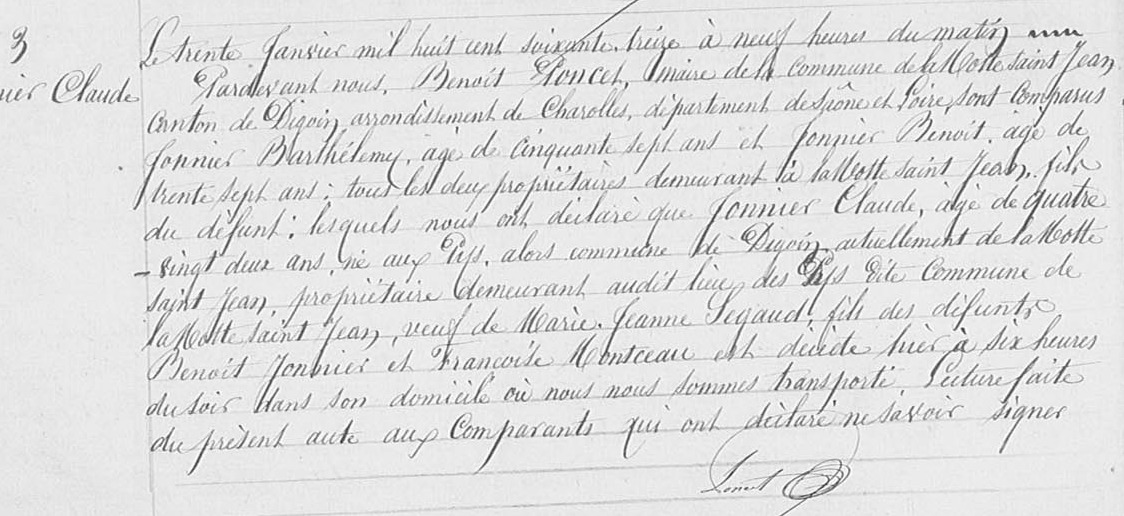 3
Le trente Janvier mil huit cent soixante treize à neuf heures du matin
nier Claude
Pardevant nous, Benoit Poncet, maire de la Commune de la Motte saint Jean
Canton de Digoin arrondissement de Charolles, département de Saône et Loire, sont Comparus
Jonnier Barthélemy, agé de Cinquante sept ans et Jonnier Benoit, agé de
trente sept ans; tous les deux propriétaires demeurant à la Motte saint Jean, fils
du défunt; lesquels nous ont déclaré que Jonnier Claude, agé de quatre
-vingt deux ans, né aux , alors commune de Digoin, actuellement de la Motte
saint Jean, propriétaire demeurant audit lieu des dite Commune de
la Motte saint Jean, veuf de Marie Jeanne Segaud, fils des défunts
Benoit Jonnier et Francoise Montceau est décédé hier à six heures
du soir dans son domicile où nous nous sommes transporté. Lecture faite
du présent acte aux Comparants qui ont déclaré ne savoir signer
Poncet